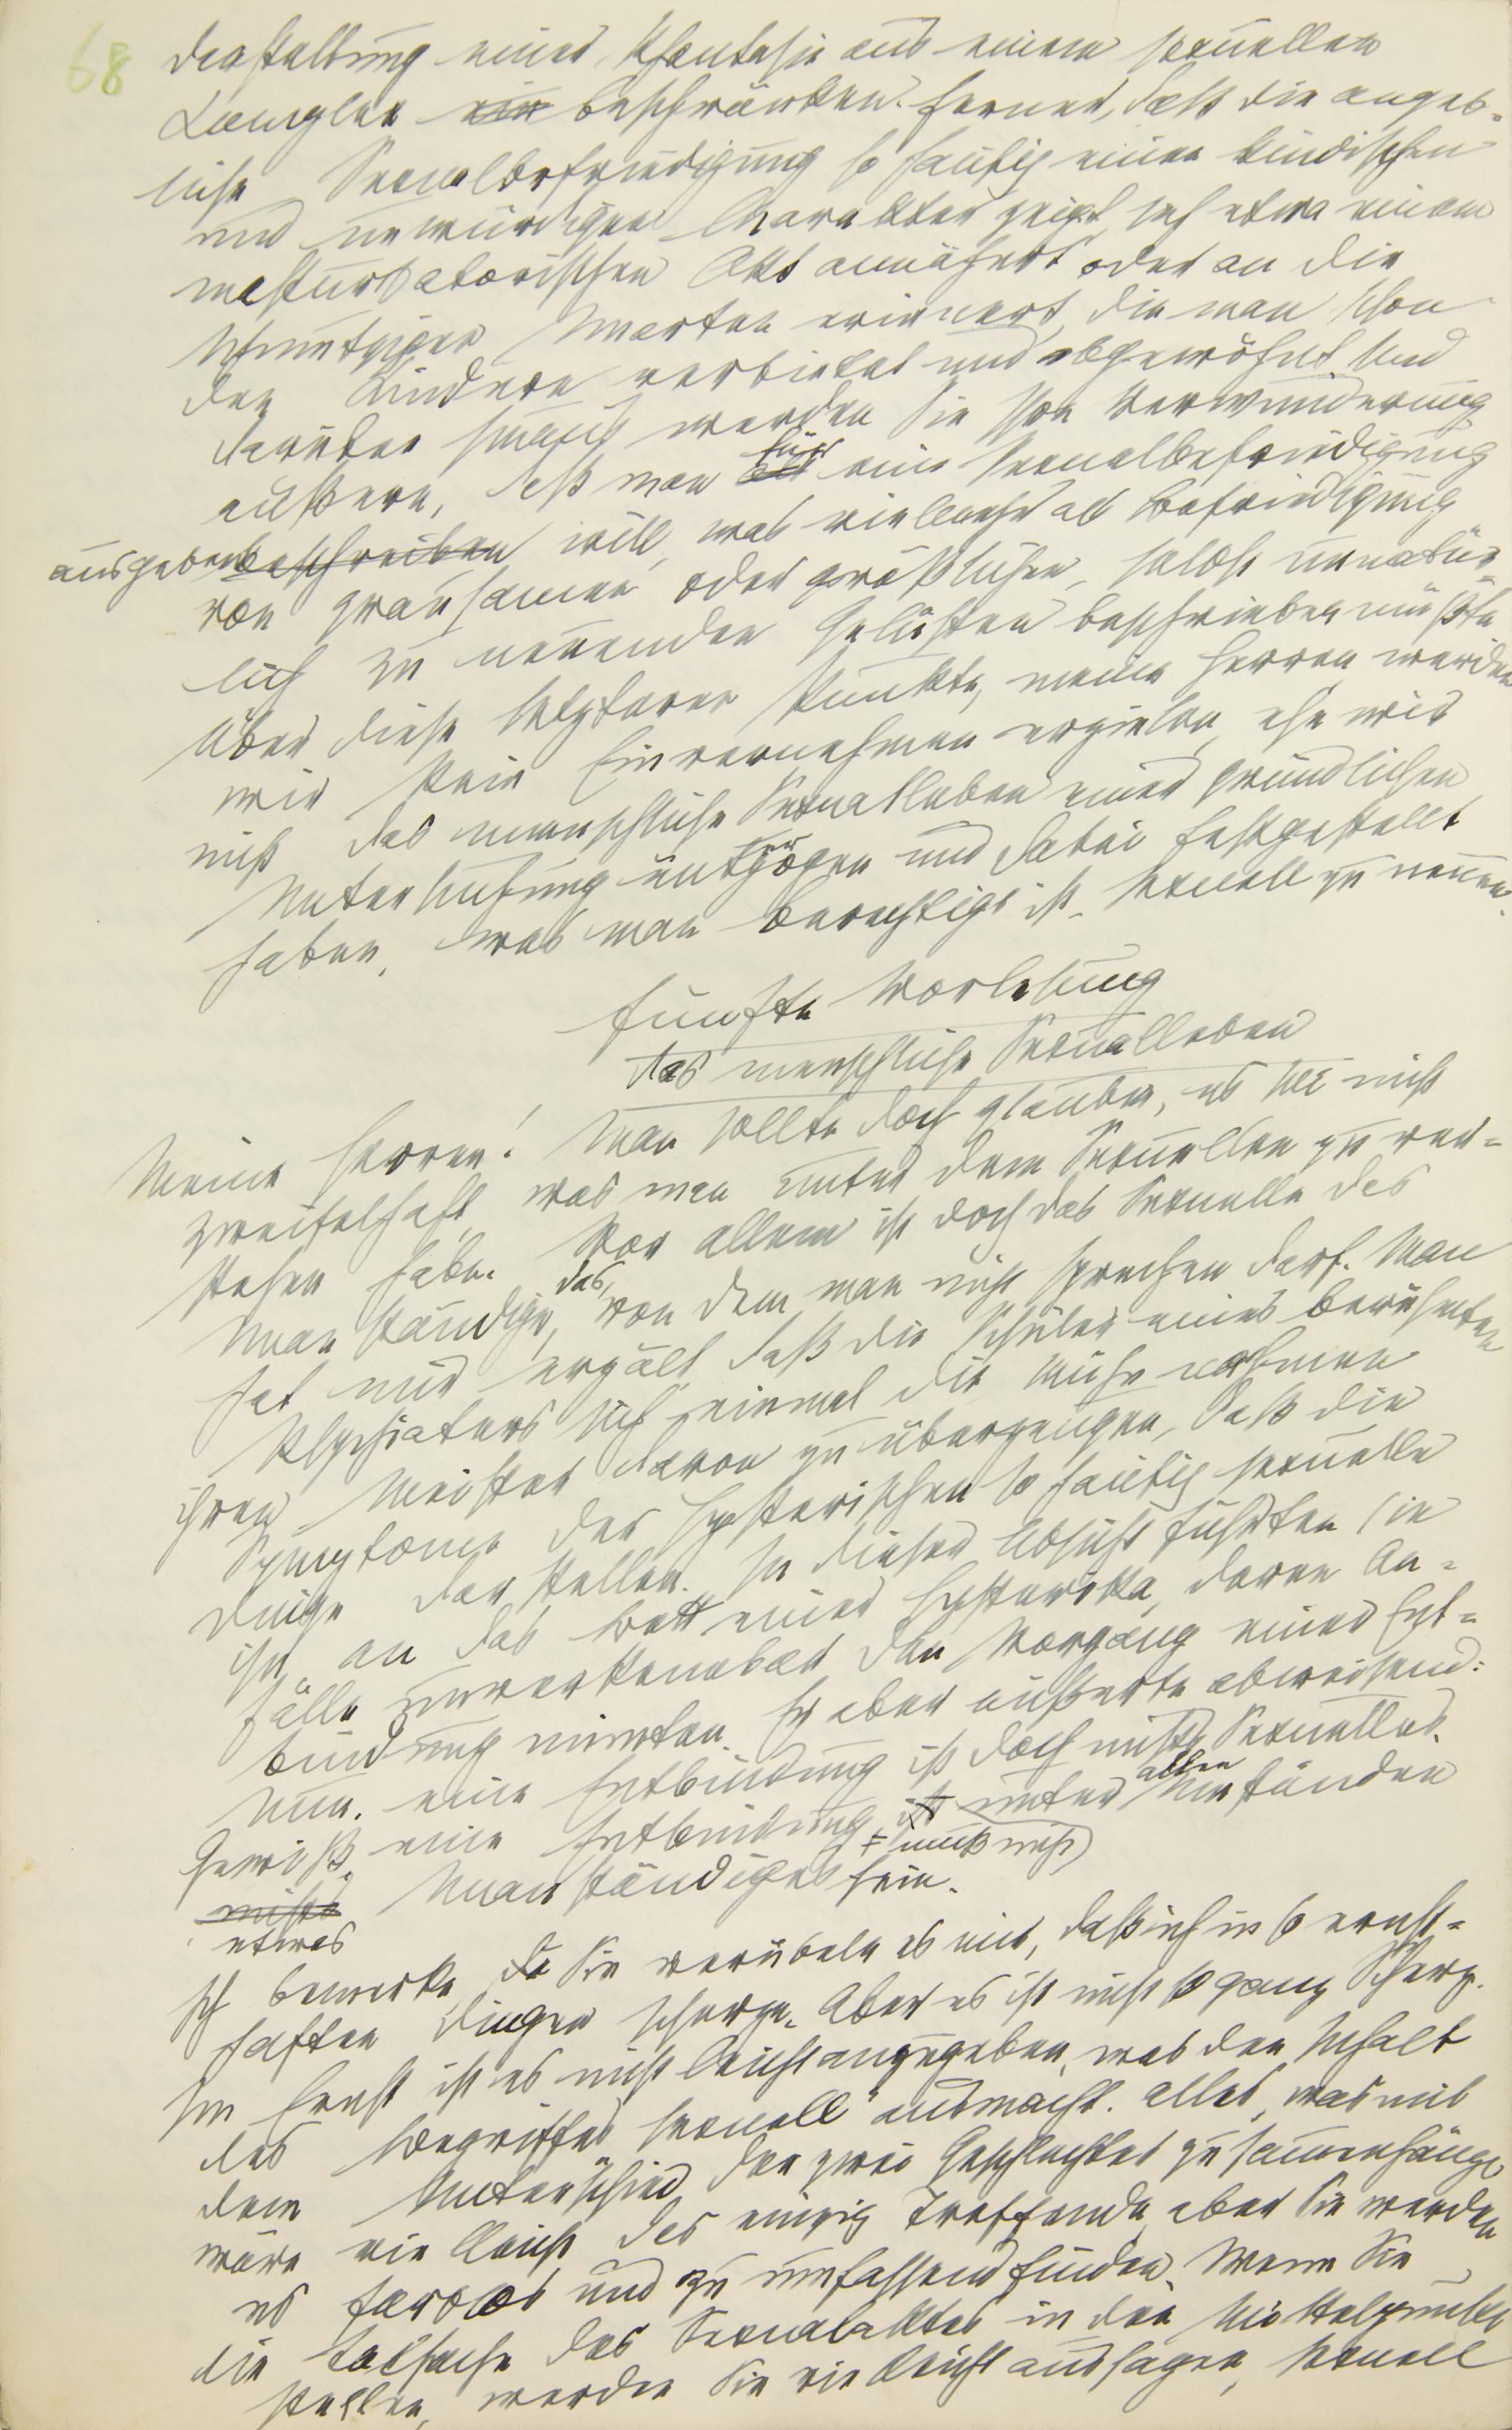 68
darstellung einer Phantasie aus einem sexuellen
Komplex ein beschränken. Ferner, daß die angeb-
liche Sexualbefriedigung so häufig einen kindischen
und unwürdigen Charakter zeigt, sich etwa einem
masturbatorischen Akt annähert oder an die
schmutzigen Unarten erinnert, die man schon
den Kindern verbietet und abgewöhnt. Und
darüber hinaus werden Sie Ihre Verwunderung
für
äußern, daß man als eine Sexualbefriedigung
ausgeben beschreiben will, was vielmehr als Befriedigung
von grausamen oder gräßlichen, selbst unnatür-
lich zu nennenden Gelüsten beschrieben müßte.
Über diese letzteren Punkte, meine Herren, werden
wir kein Einvernehmen erzielen, ehe wir
nicht das menschliche Sexualleben einer gründlichen
Untersuchung unterzogen und dabei festgestellt
haben, was man berechtigt ist, sexuell zu nennen.
Fünfte Vorlesung
Das menschliche Sexualleben
Meine Herren! Man sollte doch glauben, es sei nicht
zweifelhaft, was man unter dem Sexuellen zu ver-
stehen habe. Vor allem ist doch das Sexuelle das
Unanständige, das, von dem man nicht sprechen darf. Man
hat mir erzält, daß die Schüler eines berühmten
Psychiaters sich einmal die Mühe nahmen
ihren Meister davon zu überzeugen, daß die
Symptome der Hysterischen so häufig sexuelle
Dinge darstellen. In dieser Absicht führten sie
ihn an das Bett einer Hysterika, deren An-
fälle unverkennbar den Vorgang einer Ent-
bindung mimten. Er aber äußerte abweisend:
Nun, eine Entbindung ist doch nichts Sexuelles.
allen
Gewiß, eine Entbindung ist unter Umständen
muß nicht
nichts Unanständiges sein.
etwas
Ich bemerke, Sie verübeln es mir, daß ich in so ernst-
haften Dingen scherze. Aber es ist nicht so ganz Scherz.
Im Ernst ist es nicht leicht anzugeben, was den Inhalt
des Begriffes „sexuell“ ausmacht. Alles, was mit
dem Unterschied der zwei Geschlechter zusammenhängt,
wäre vielleicht das einzig Treffende, aber Sie werden
es farblos und zu umfassend finden. Wenn Sie
die Tatsache des Sexualaktes in den Mittelpunkt
stellen, werden Sie vielleicht aussagen, sexuell